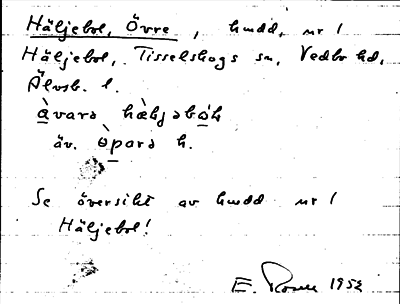 Häljebol, Övre, hmdd. nr 1
Häljebol, Tisselskogs sn, Vedbo hd,
Älvsb. l.
àvarə hàljəbòl
äv. òparə h.
Se översikt av hmdd nr 1
Häljebol!
E. Rosell 1952